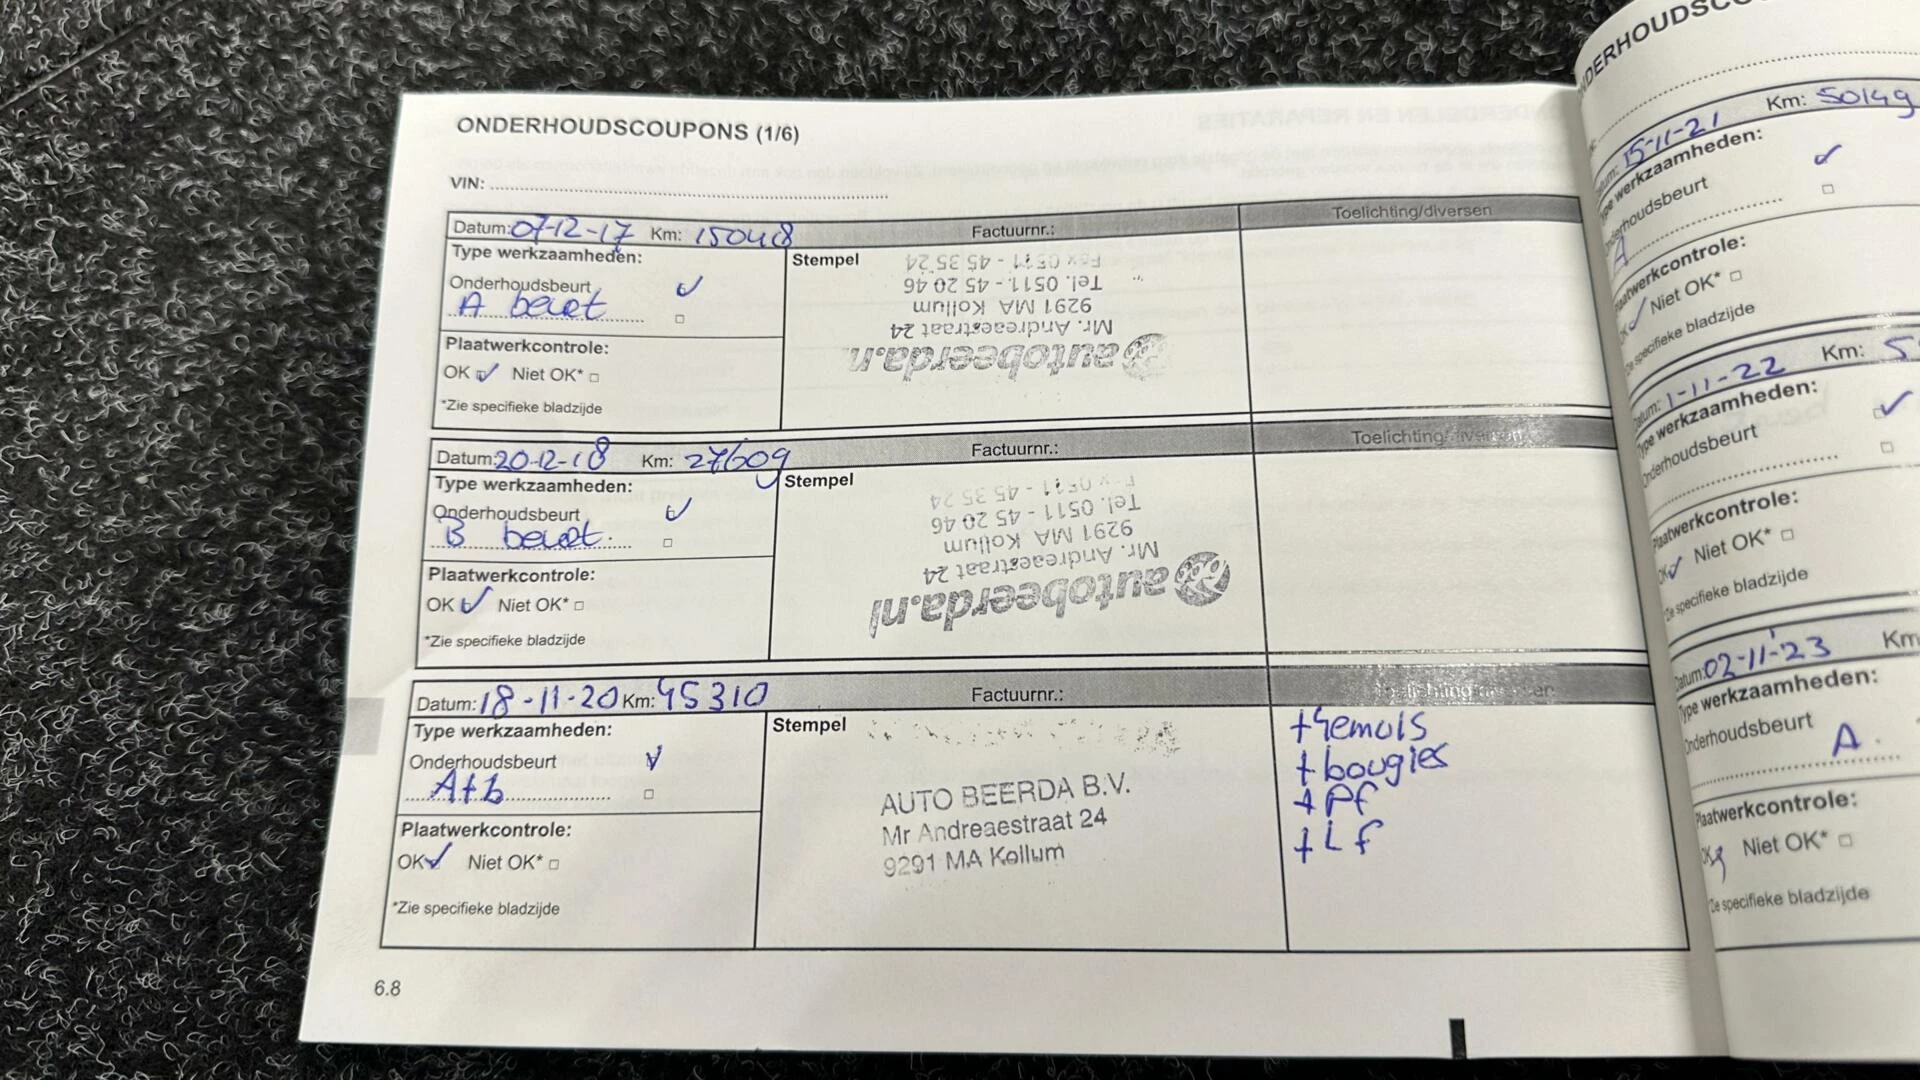 ONDERHOUDSCOUPONS (1/6)
VIN:
Datum: 07-12-17 Km: 15048 Factuurnr.: Toelichting/diversen
Type werkzaamheden:
Onderhoudsbeurt
A beurt
Plaatwerkcontrole:
OK Niet OK*
*Zie specifieke bladzijde
Stempel
autobeerda.n
Mr. Andreaestraat 24
9291 MA Kollum
Tel. 0511 - 45 20 46
Fax 0511 - 45 35 24
Datum: 20-12-18 Km: 27609 Factuurnr.: Toelichting/diversen
Type werkzaamheden:
Onderhoudsbeurt
B beurt.
Plaatwerkcontrole:
OK Niet OK*
*Zie specifieke bladzijde
Stempel
autobeerda.nl
Mr. Andreaestraat 24
9291 MA Kollum
Tel. 0511 - 45 20 46
Fax 0511 - 45 35 24
Datum: 18-11-20 Km: 45310 Factuurnr.: Toelichting/diversen
Type werkzaamheden:
Onderhoudsbeurt
A+b
Plaatwerkcontrole:
OK Niet OK*
*Zie specifieke bladzijde
Stempel
AUTO BEERDA B.V.
Mr Andreaestraat 24
9291 MA Kollum
+remols
+bougies
+Pf
+Lf
6.8
NDERHOUDSCO
tum: 15-11-21 Km: 50149
Type werkzaamheden:
nderhoudsbeurt
A
laatwerkcontrole:
OK Niet OK*
Zie specifieke bladzijde
atum: 1-11-22 Km: 5
Type werkzaamheden:
Onderhoudsbeurt
Plaatwerkcontrole:
OK Niet OK*
*Zie specifieke bladzijde
Datum: 02-11-'23 Km
Type werkzaamheden:
Onderhoudsbeurt
A.
Plaatwerkcontrole:
OK Niet OK*
*Zie specifieke bladzijde